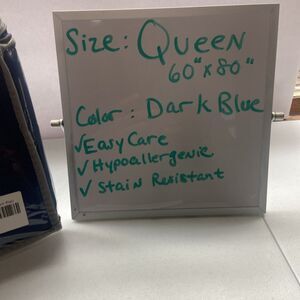 Size: Queen
60" x 80"
Color: Dark Blue
✓Easy Care
✓Hypoallergenic
✓Stain Resistant